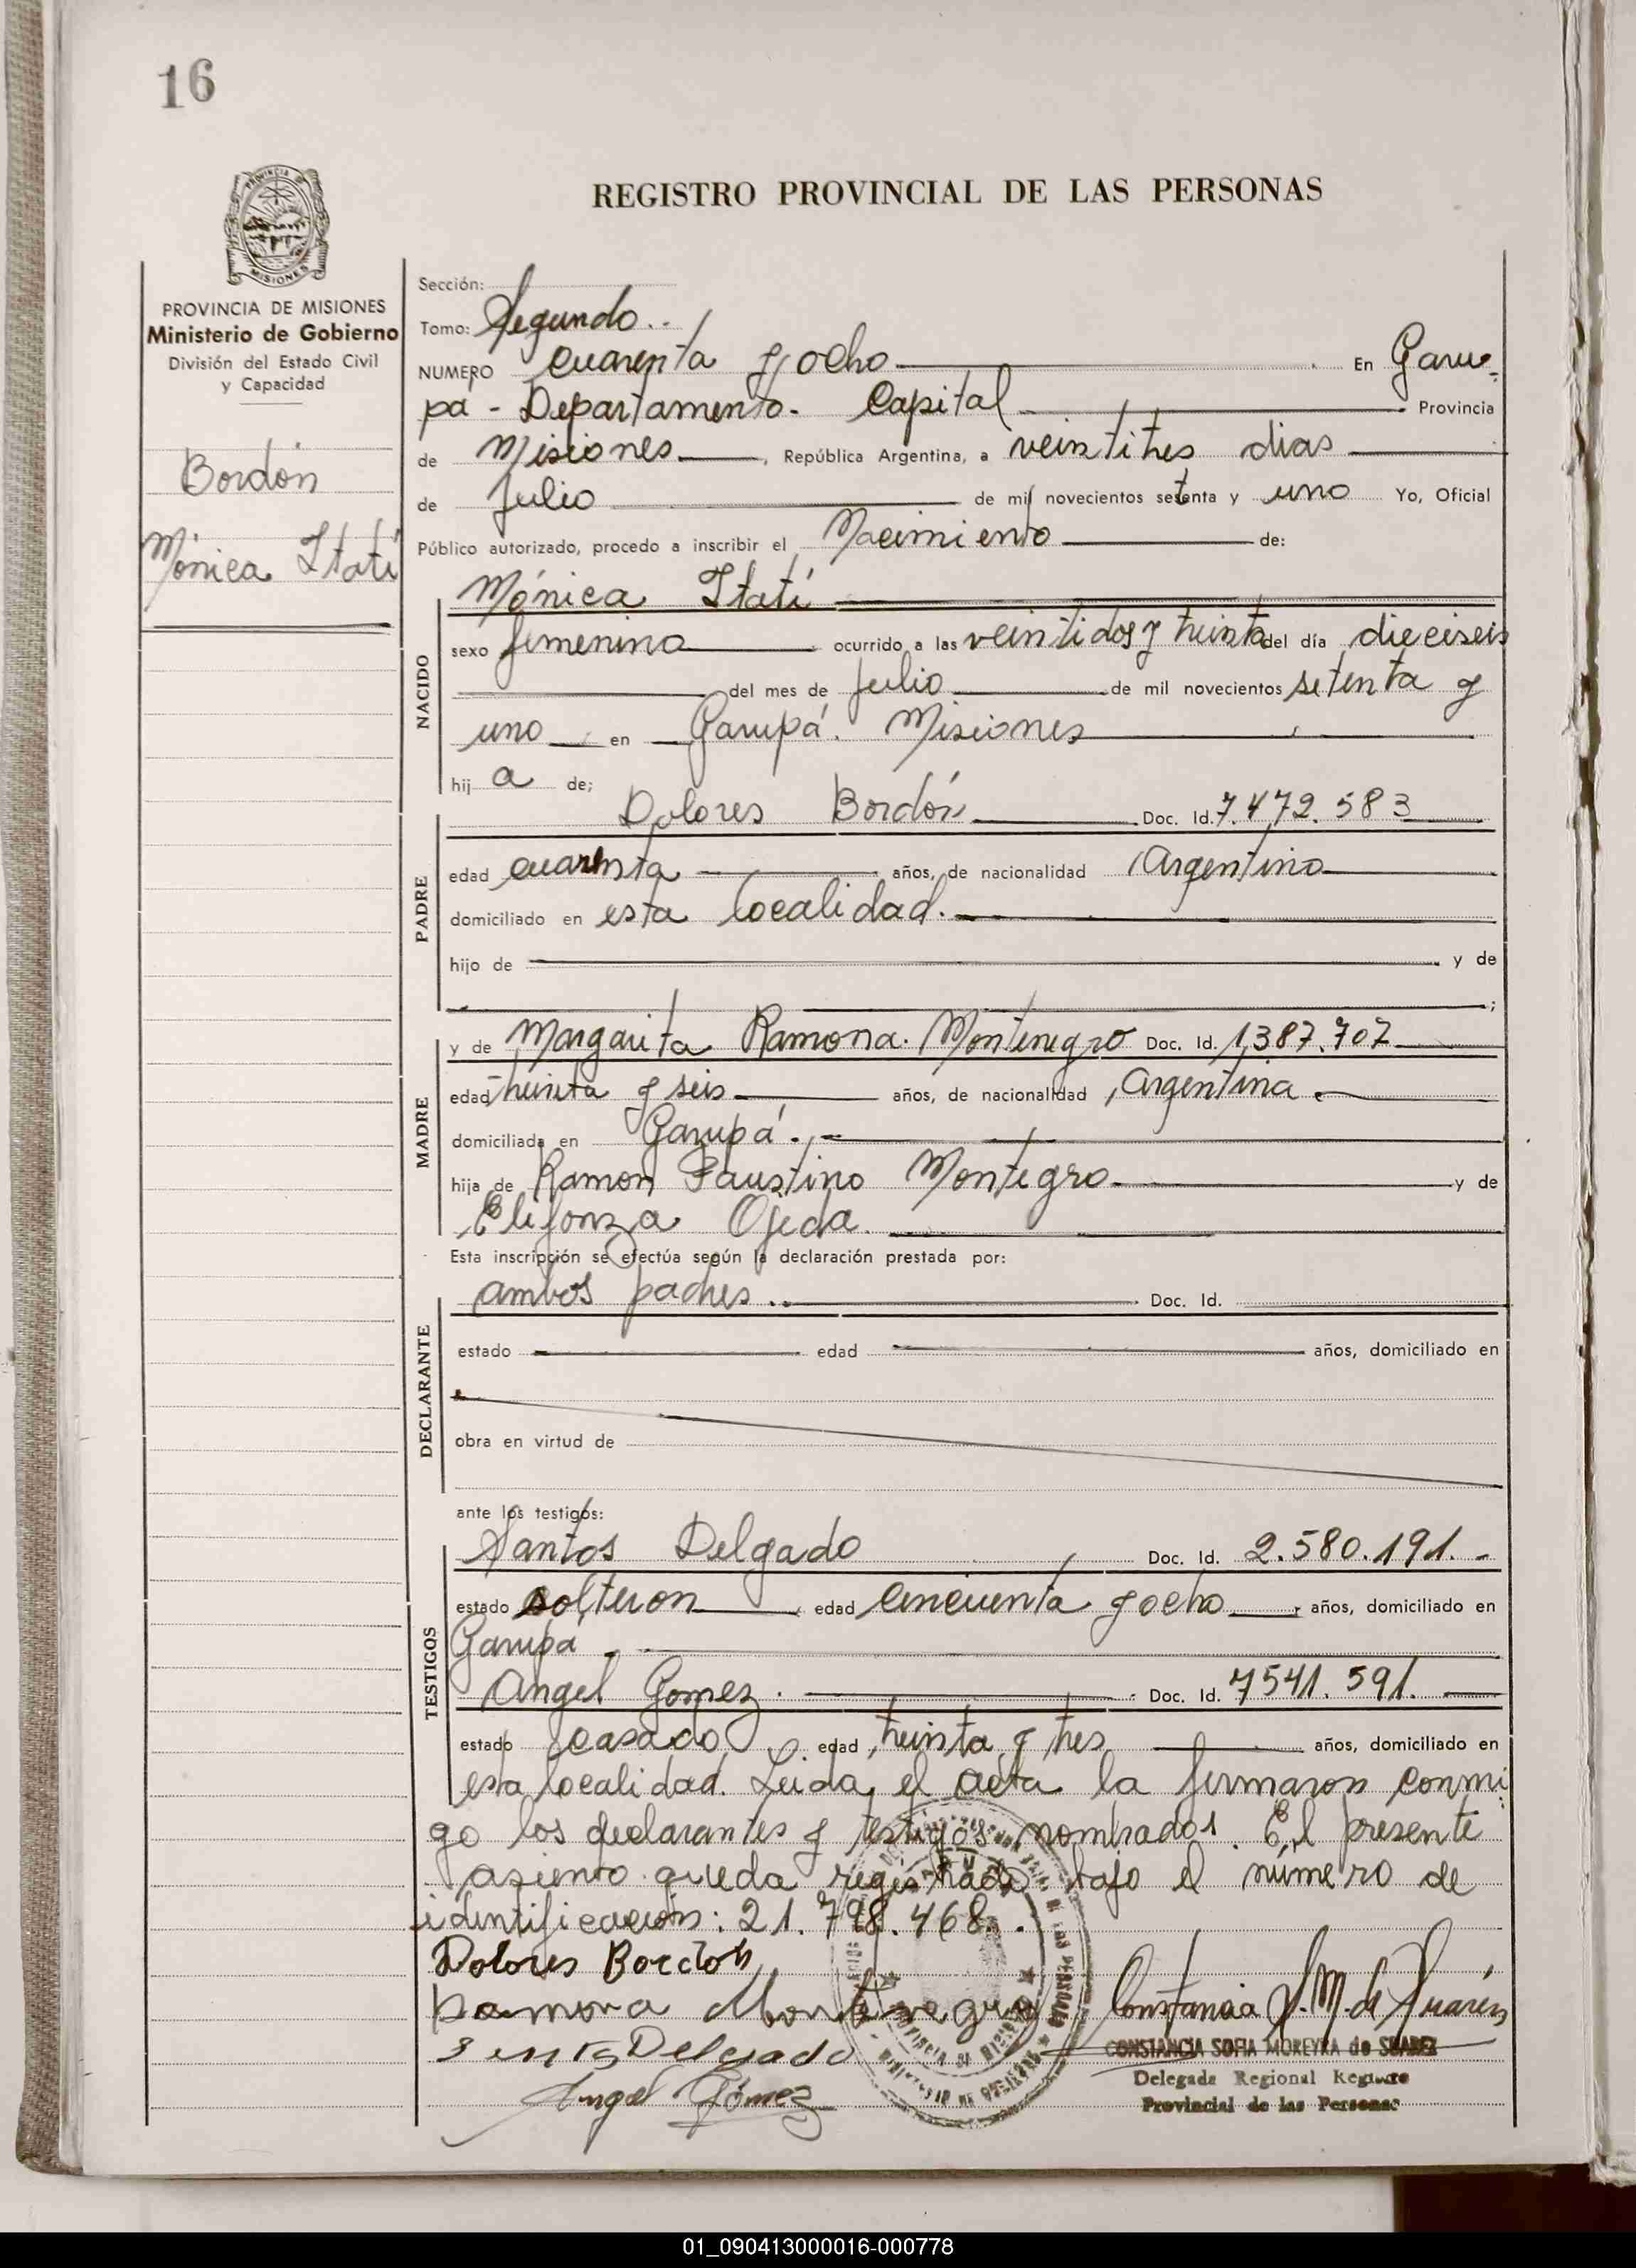 16
PROVINCIA DE MISIONES
Ministerio de Gobierno
División del Estado Civil
y Capacidad
Bordón
Mónica Itatí
REGISTRO PROVINCIAL DE LAS PERSONAS
Sección:
Tomo: Segundo..
NUMERO cuarenta y ocho En Garu-
pá - Departamento - Capital Provincia
de Misiones, República Argentina, a veintitres dias
de Julio de mil novecientos setenta y uno Yo, Oficial
Público autorizado, procedo a inscribir el Nacimiento de:
Mónica Itatí
NACIDO
sexo femenino ocurrido a las veintidos y treinta del día dieciseis
del mes de Julio de mil novecientos setenta y
uno en Garupá. Misiones
hij a de;
Dolores Bordón Doc. Id. 7.472.583
PADRE
edad cuarenta años, de nacionalidad Argentino
domiciliado en esta localidad.
hijo de y de
;
y de Margarita Ramona Montenegro Doc. Id. 1.387.707
MADRE
edad treinta y seis años, de nacionalidad Argentina
domiciliada en Garupá.
hija de Ramon Faustino Montegro y de
Elifonza Ojeda.
Esta inscripción se efectúa según la declaración prestada por:
ambos padres.. Doc. Id.
DECLARANTE
estado edad años, domiciliado en
obra en virtud de
ante los testigos:
Santos Delgado Doc. Id. 2.580.191.-
TESTIGOS
estado solteron edad cincuenta y ocho años, domiciliado en
Garupá
Angel Gomez. Doc. Id. 7541.591.
estado casado edad treinta y tres años, domiciliado en
esta localidad. Leida el acta la firmaron conmi
go los declarantes y testigos nombrados. El presente
asiento queda registrado bajo el número de
identificación: 21.798.468.
Dolores Bordon
Ramona Montenegro Constancia S. M. de Suárez
Delgado CONSTANCIA SOFIA MOREYRA de SUAREZ
Angel Gómez Delegada Regional Registro
Provincial de las Personas
01_090413000016-000778